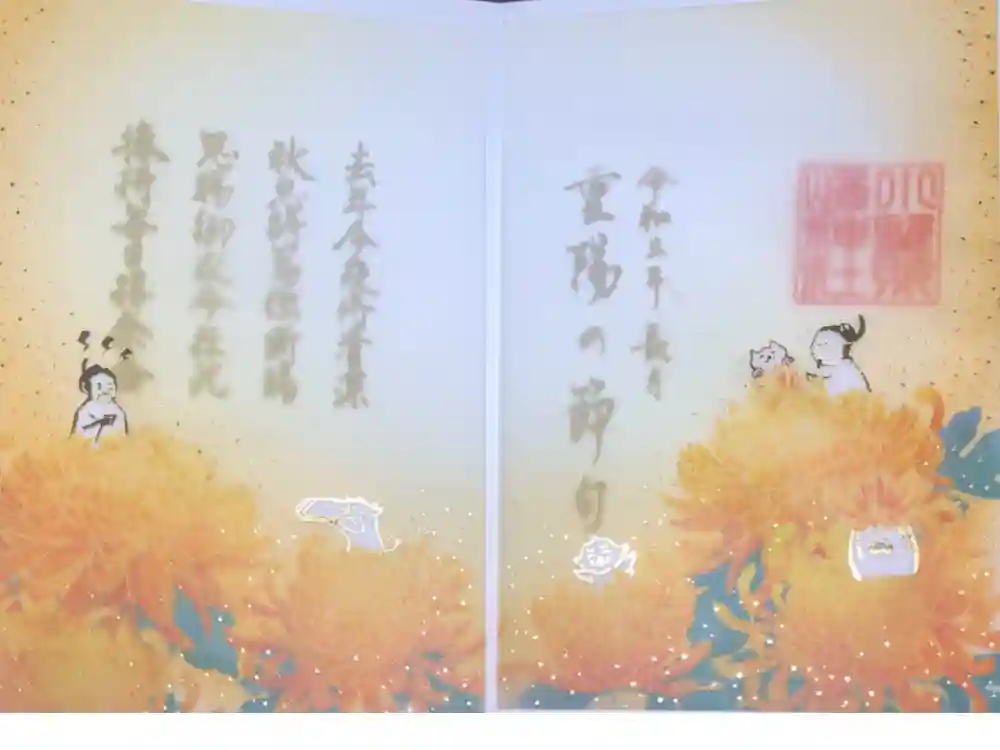 令和五年 長月
重陽の節句
去年今夜侍清涼
秋思詩篇独断腸
恩賜御衣今在此
捧持毎日拝余香